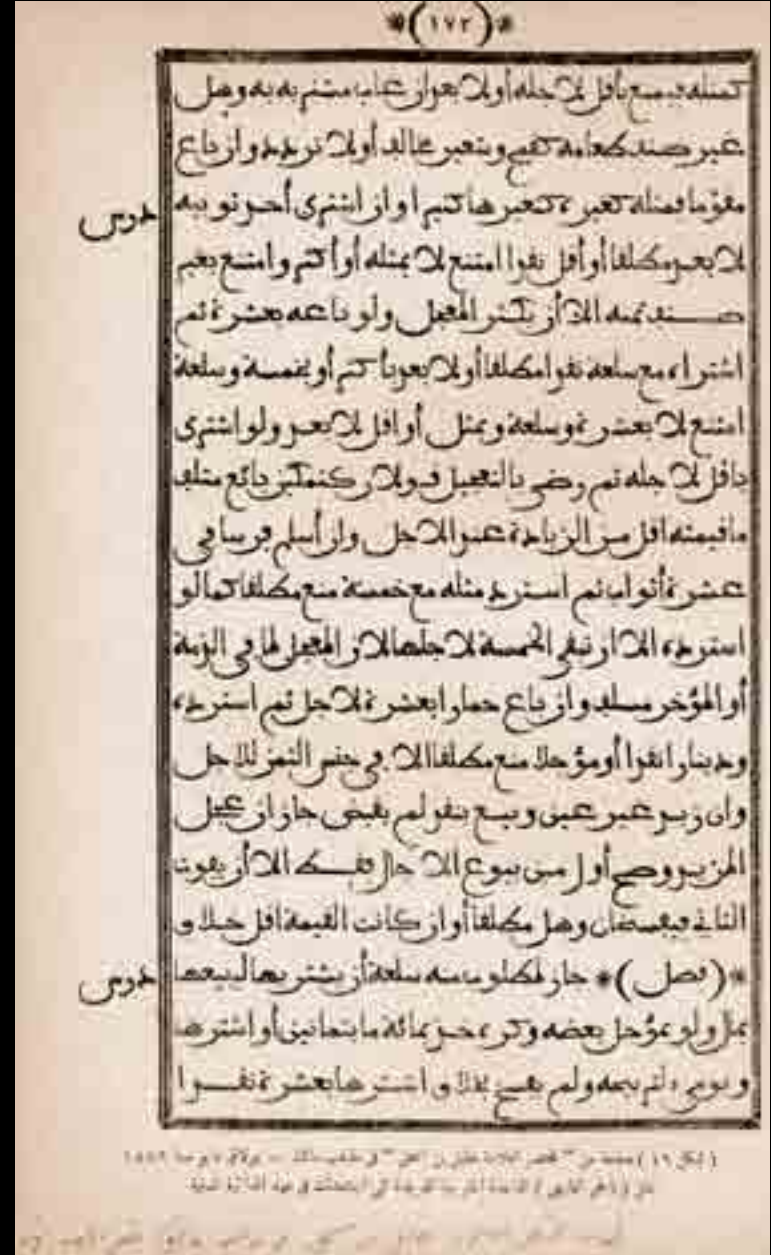 (١٧٢)
كمثله فيمنع بأقل لأجله أو لأبعد إن غاب مشتريه به وهل
غير صنف طعامه كقمح وشعير مخالف أو لا تردد وإن باع
مقوما فمثله كغيره كتغيرها كثيرا وإن اشترى أحد ثوبيه
لأبعد مطلقا أو أقل نقدا امتنع لا بمثله أو أكثر وامتنع بغير
صنف ثمنه إلا أن يكثر المعجل ولو باعه بعشرة ثم
اشتراه مع سلعة نقدا مطلقا أو لأبعد بأكثر أو بخمسة وسلعة
امتنع لا بعشرة وسلعة وبمثل أو أقل لأبعد ولو اشترى
بأقل لأجله ثم رضي بالتعجيل قولان كتمكين بائع متلف
ما قيمته أقل من الزيادة عند الأجل وإن أسلم فرسا في
عشرة أثواب ثم استرد مثله مع خمسة منع مطلقا كما لو
استرده إلا أن تبقى الخمسة لأجلها لأن المعجل لما في الذمة
أو المؤخر مسلف وإن باع حمارا بعشرة لأجل ثم استرده
ودينارا نقدا أو مؤجلا منع مطلقا إلا في جنس الثمن للأجل
وإن زيد غير عين وبيع بنقد لم يقبض جاز إن عجل
المزيد وصح أول من بيوع الآجال فقط إلا أن يفوت
الثاني فيفسخان وهل مطلقا أو إن كانت القيمة أقل خلاف
*(فصل)* جاز لمطلوب منه سلعة أن يشتريها ليبيعها
بمال ولو بمؤجل بعضه وكره خذ بمائة ما بثمانين أو اشترها
ويومي لتربيحه ولم يفسخ بخلاف اشترها بعشرة نقدا
درس
درس